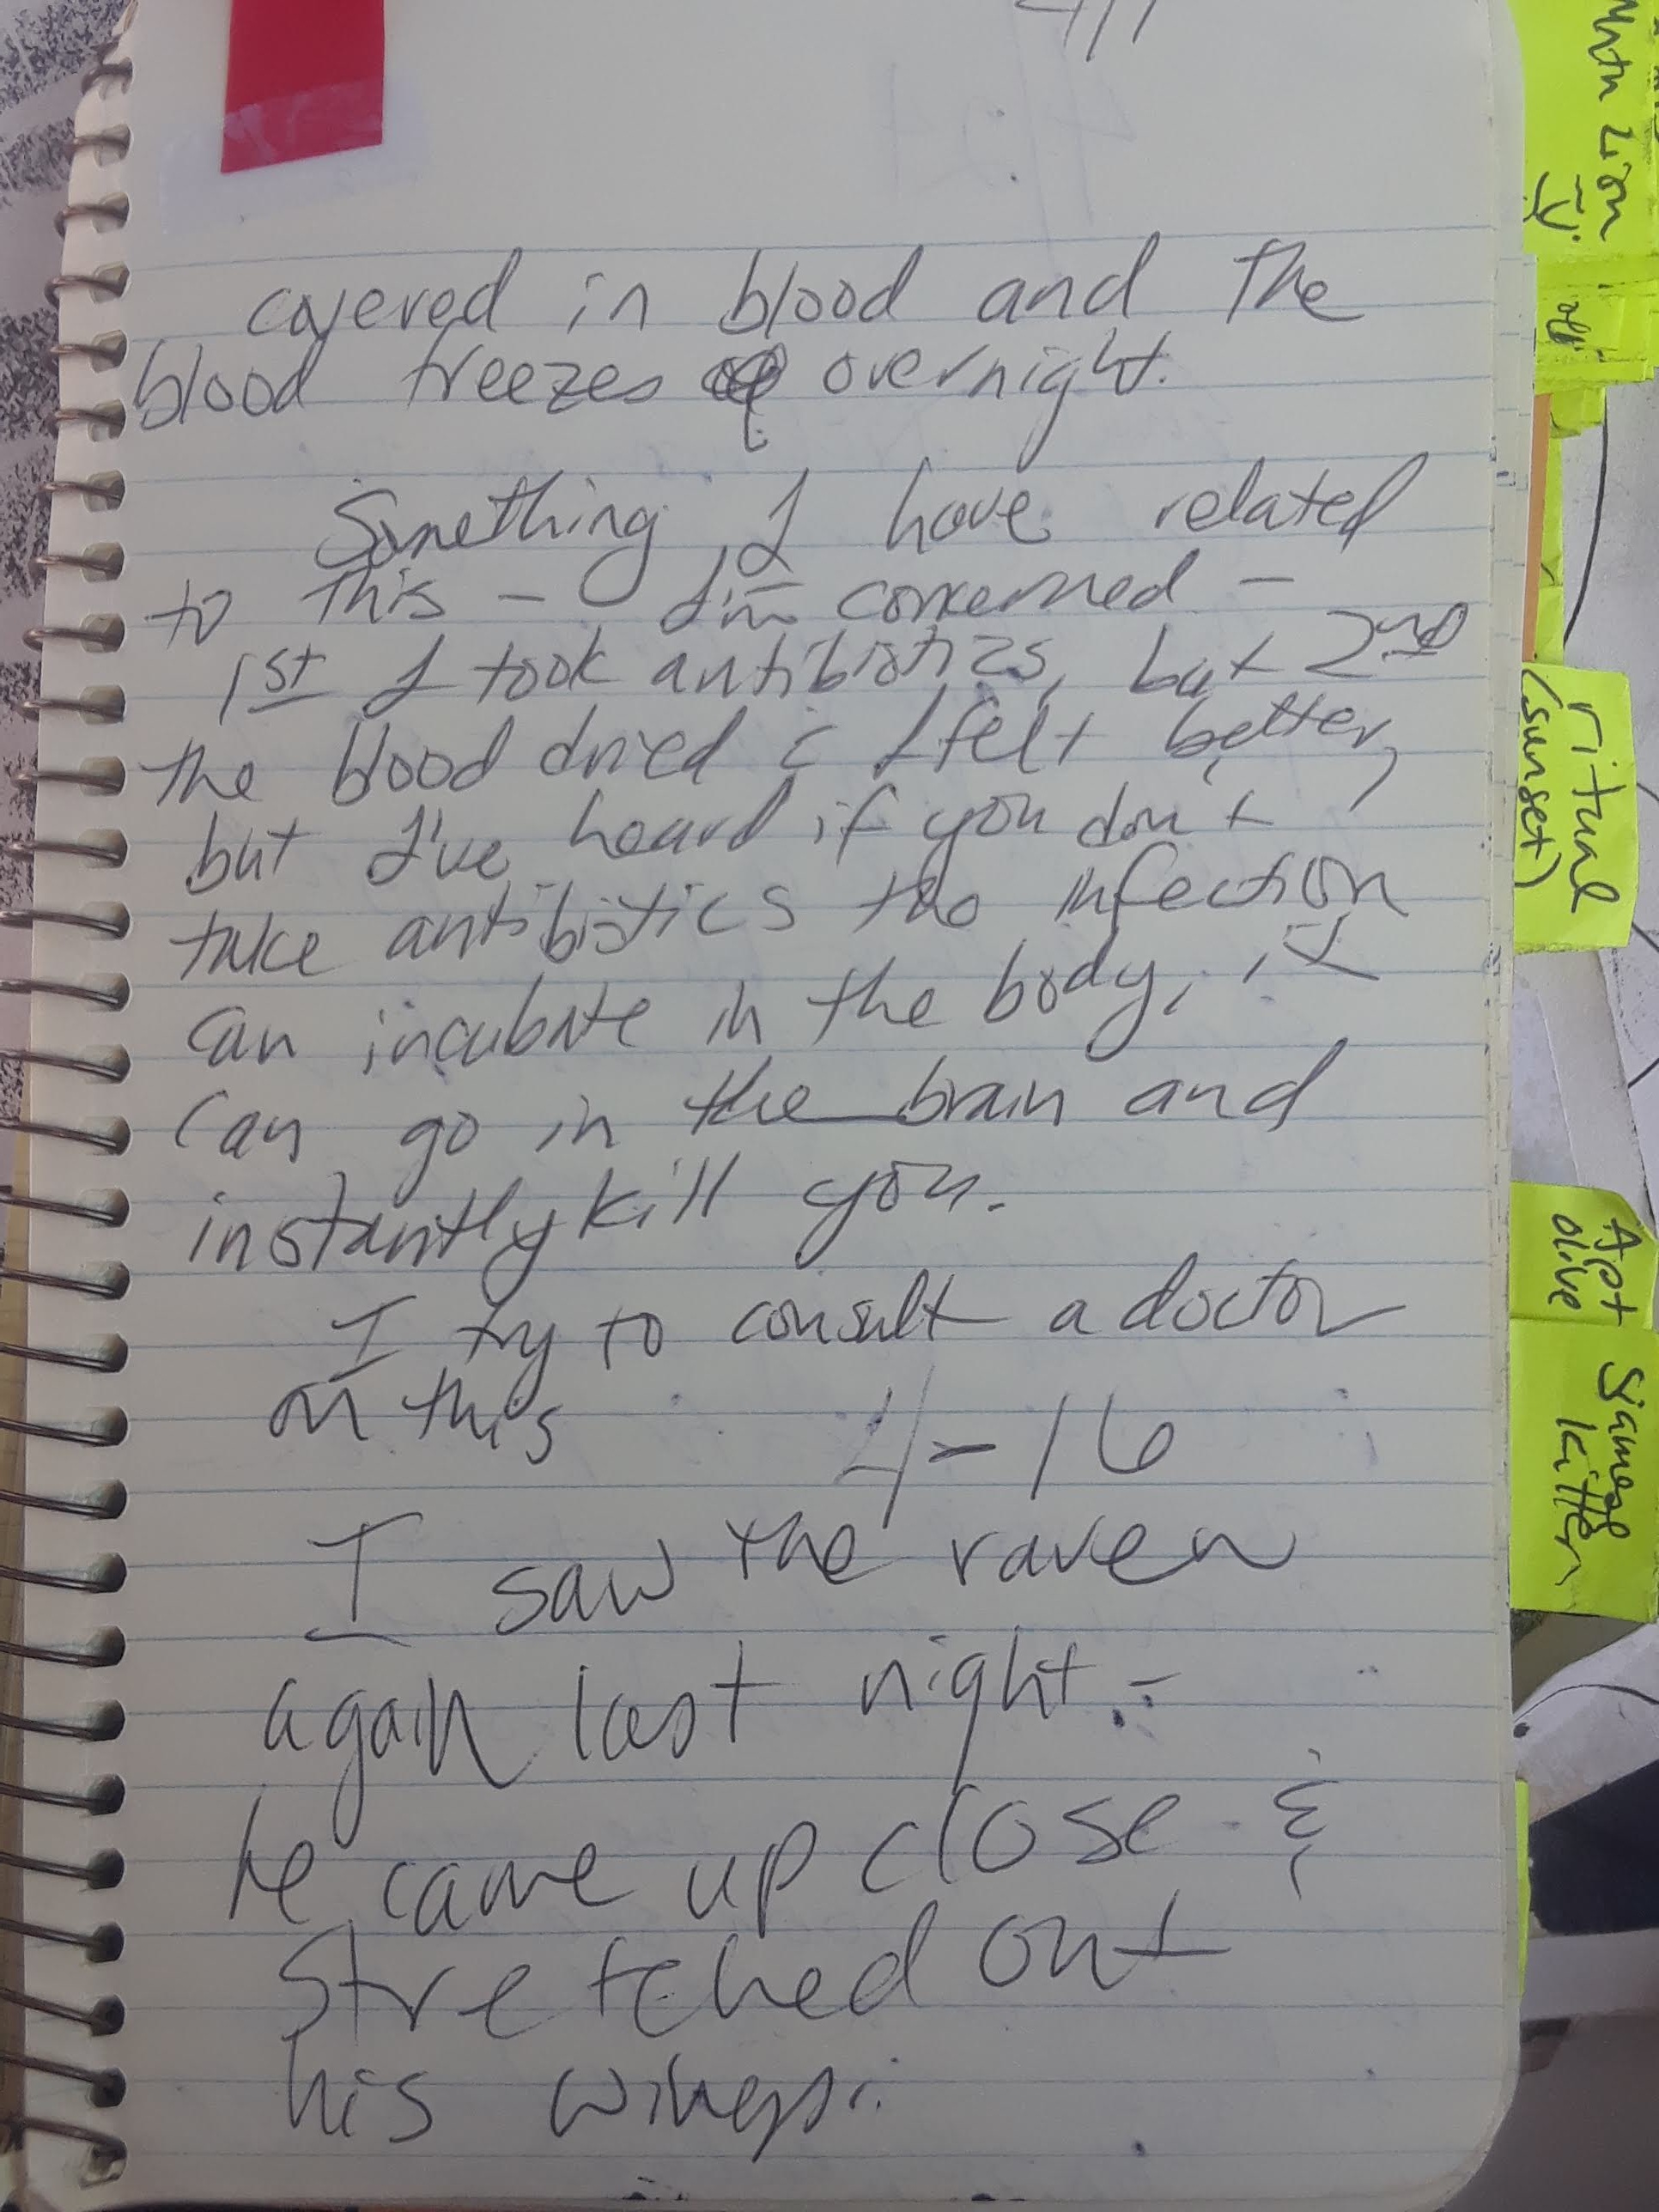 covered in blood and the
blood freezes overnight.
Something I have related
to this - I'm concerned -
1st I took antibiotics, but 2nd
the blood dried & I felt better,
but I've heard if you don't
take antibiotics the infection
can incubate in the body, it
can go in the brain and
instantly kill you.
I try to consult a doctor
on this
4-16
I saw the raven
again last night -
he came up close &
stretched out
his wings.
Mntn Lion
ritual
(sunset)
Apt
olive
Siamese
kitten